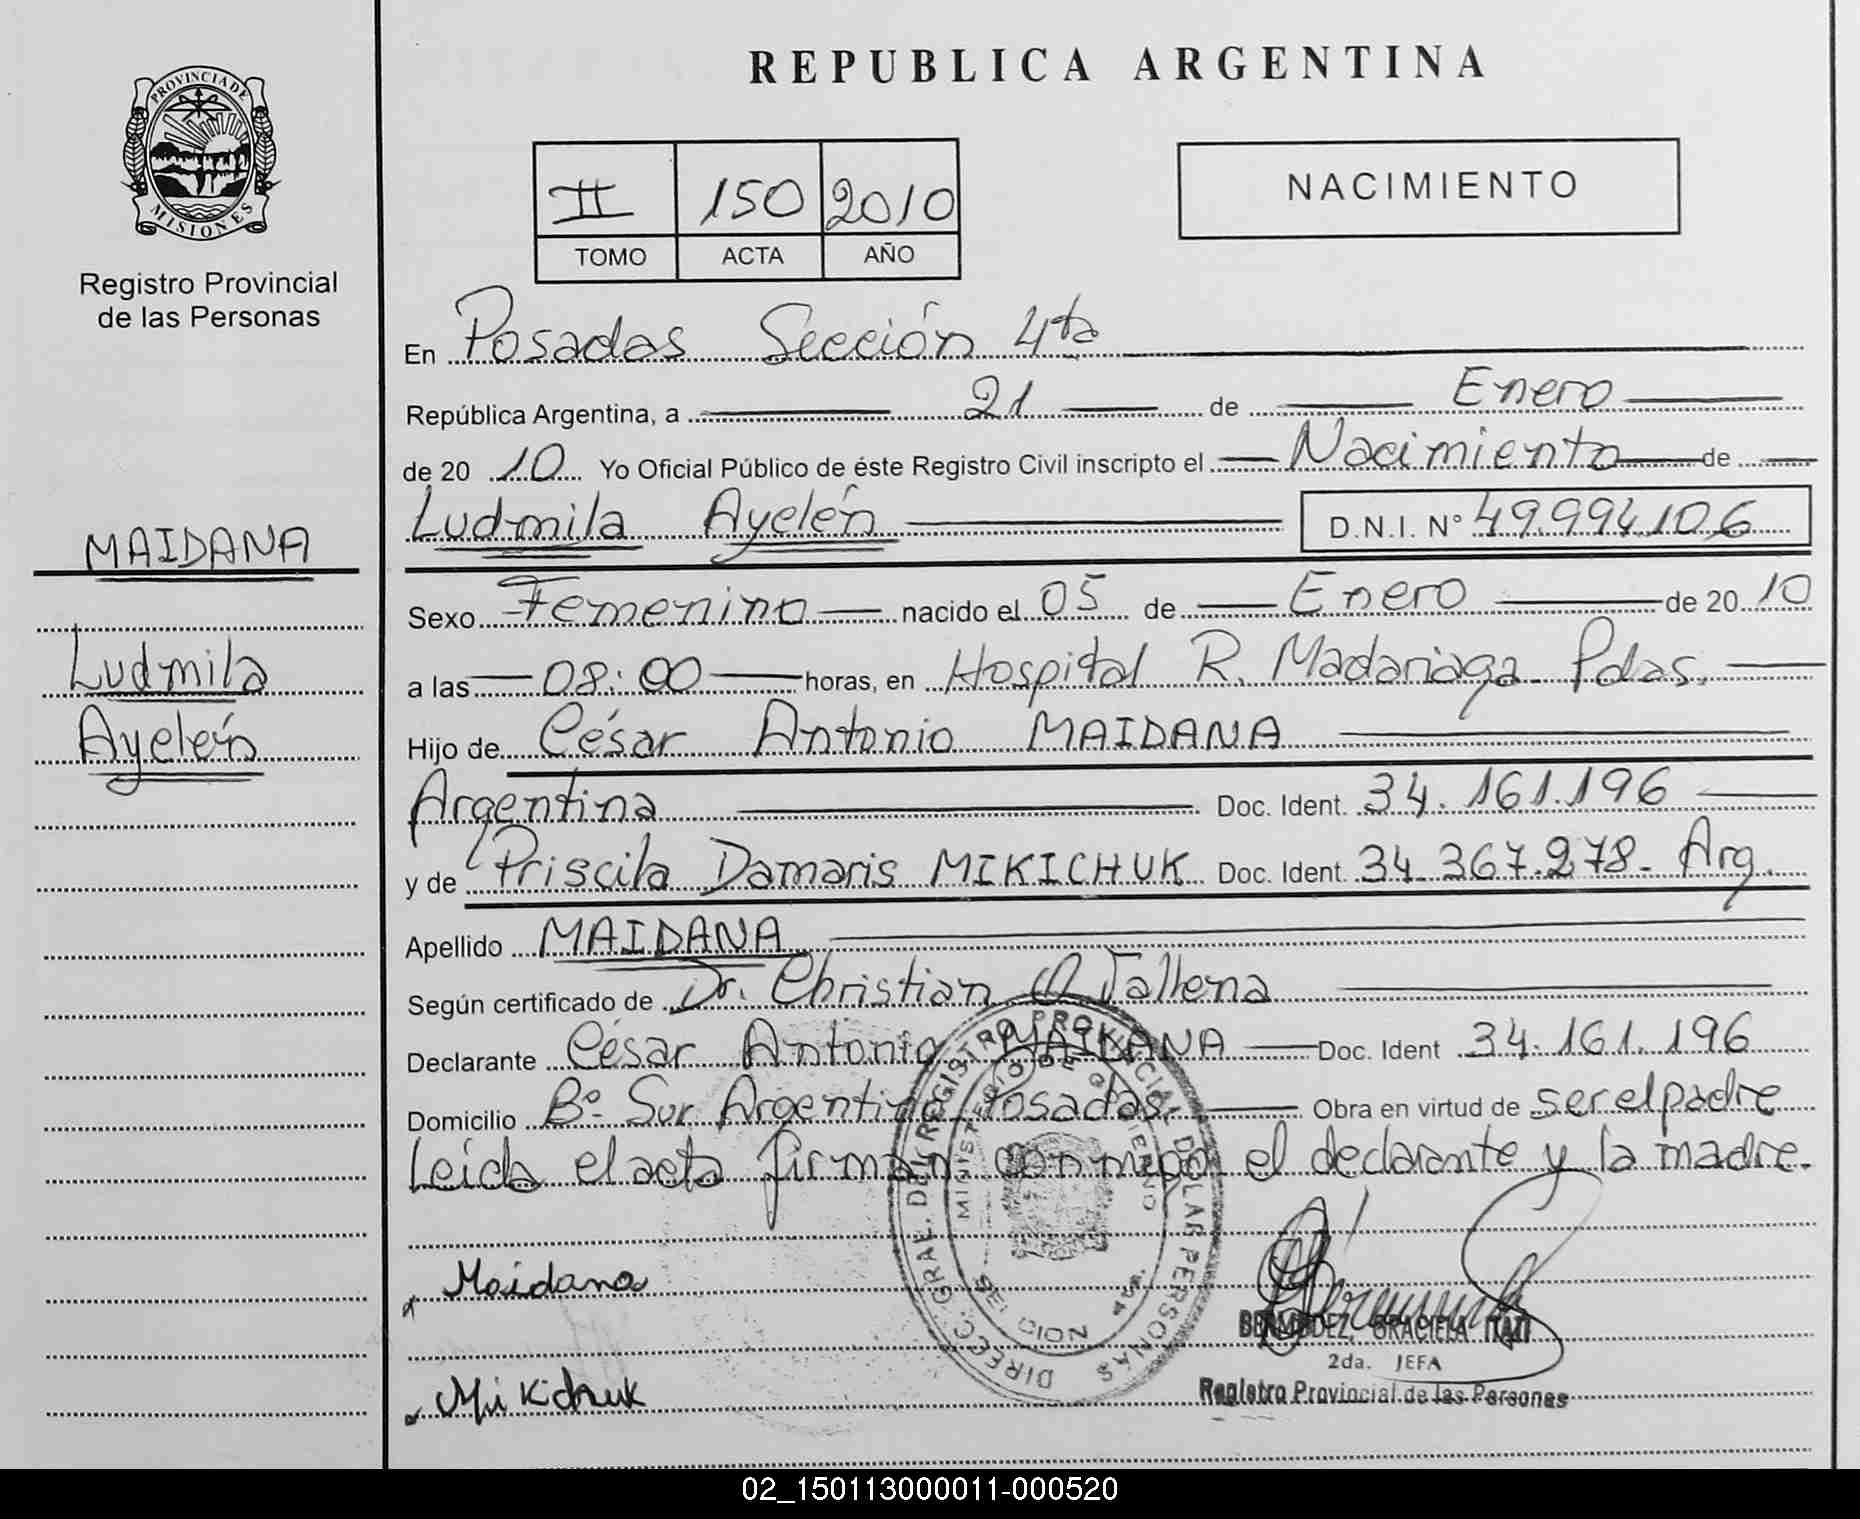 REPUBLICA ARGENTINA
PROVINCIA DE
MISIONES
Registro Provincial
de las Personas
II 150 2010
TOMO ACTA AÑO
NACIMIENTO
En Posadas Sección 4ta
República Argentina, a 21 de Enero
de 20 10 Yo Oficial Público de éste Registro Civil inscripto el Nacimiento de
Ludmila Ayelén D.N.I. N° 49.994.106
MAIDANA
Ludmila
Ayelén
Sexo Femenino nacido el 05 de Enero de 20 10
a las 08:00 horas, en Hospital R. Madariaga Pdas.
Hijo de César Antonio MAIDANA
Argentina Doc. Ident. 34.161.196
y de Priscila Damaris MIKICHUK Doc. Ident. 34.367.278- Arg.
Apellido MAIDANA
Según certificado de Dr. Christian O
Declarante César Antonio MAIDANA Doc. Ident 34.161.196
Domicilio B°- Sur Argentino Posadas. Obra en virtud de ser el padre
Leída el acta firman conmigo el declarante y la madre.
DIRECC. GRAL. DEL REGISTRO PROVINCIAL DE LAS PERSONAS
MINISTERIO DE GOBIERNO
SECCION 4ta.
Maidana
BERMUDEZ, GRACIELA ITATI
2da. JEFA
Registro Provincial de las Personas
Mikichuk
02_150113000011-000520